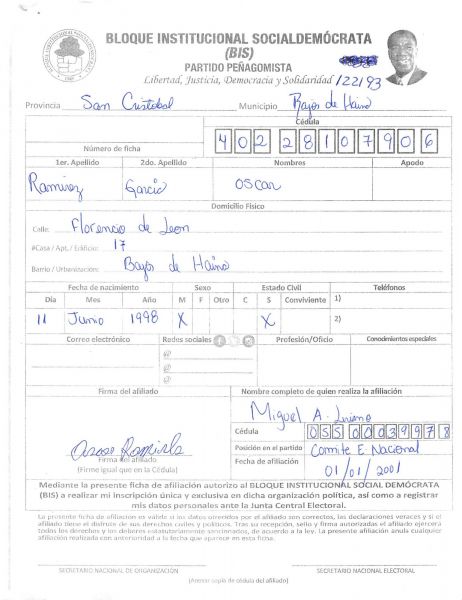 BLOQUE INSTITUCIONAL SOCIALDEMÓCRATA
(BIS)
PARTIDO PEÑAGOMISTA
Libertad, Justicia, Democracia y Solidaridad
122193
Provincia San Cristobal Municipio Bajos de Haina
Cédula
Número de ficha 40228107906
1er. Apellido 2do. Apellido Nombres Apodo
Ramirez Garcia Oscar
Domicilio Físico
Calle: Florencio de Leon
#Casa / Apt. / Edificio: 17
Barrio / Urbanización: Bajos de Haina
Fecha de nacimiento Sexo Estado Civil Teléfonos
Día Mes Año M F Otro C S Conviviente 1)
11 Junio 1998 X X 2)
Correo electrónico Redes sociales Profesión/Oficio Conodmientos especiales
@
@
@
Firma del afiliado Nombre completo de quien realiza la afiliación
Miguel A.
Cédula 05500039978
Posición en el partido Comite E. Nacional
Firma del afiliado
(Firme igual que en la Cédula)
Fecha de afiliación 01/01/2001
Mediante la presente ficha de afiliación autorizo al BLOQUE INSTITUCIONAL SOCIAL DEMÓCRATA
(BIS) a realizar mi inscripción única y exclusiva en dicha organización política, así como a registrar
mis datos personales ante la Junta Central Electoral.
La presente ficha de afiliación es valida si los datos ofrecidos por el afiliado son correctos, las declaraciones veraces y si el
afiliado tiene el disfrute de sus derechos civiles y políticos. Tras su recepción, sello y firma autorizadas el afiliado ejercerá
todos los derechos y los deberes estatutariamente sancionados, de acuerdo a la ley. La presente afiliación anula cualquier
afiliación realizada con anterioridad a la fecha que aparece en esta ficha.
SECRETARIO NACIONAL DE ORGANIZACIÓN SECRETARIO NACIONAL ELECTORAL
(Anexar copia de cédula del afiliado)